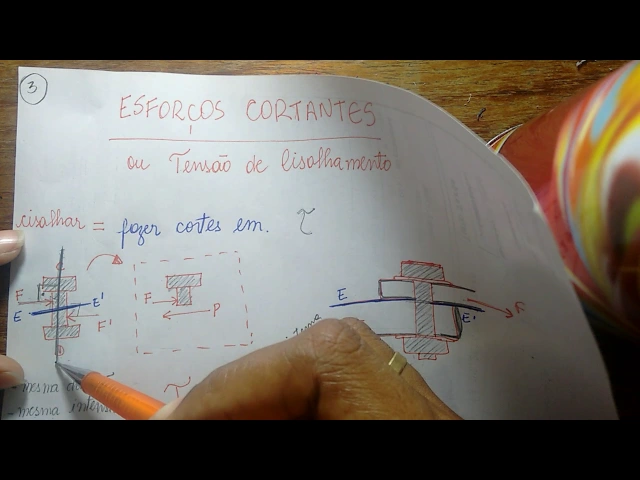 3
ESFORÇOS CORTANTES
ou Tensão de lisalhamento
cisalhar = fazer cortes em. τ
C
F
E
E'
F'
F
P
E
F
E'
- mesma
- mesma